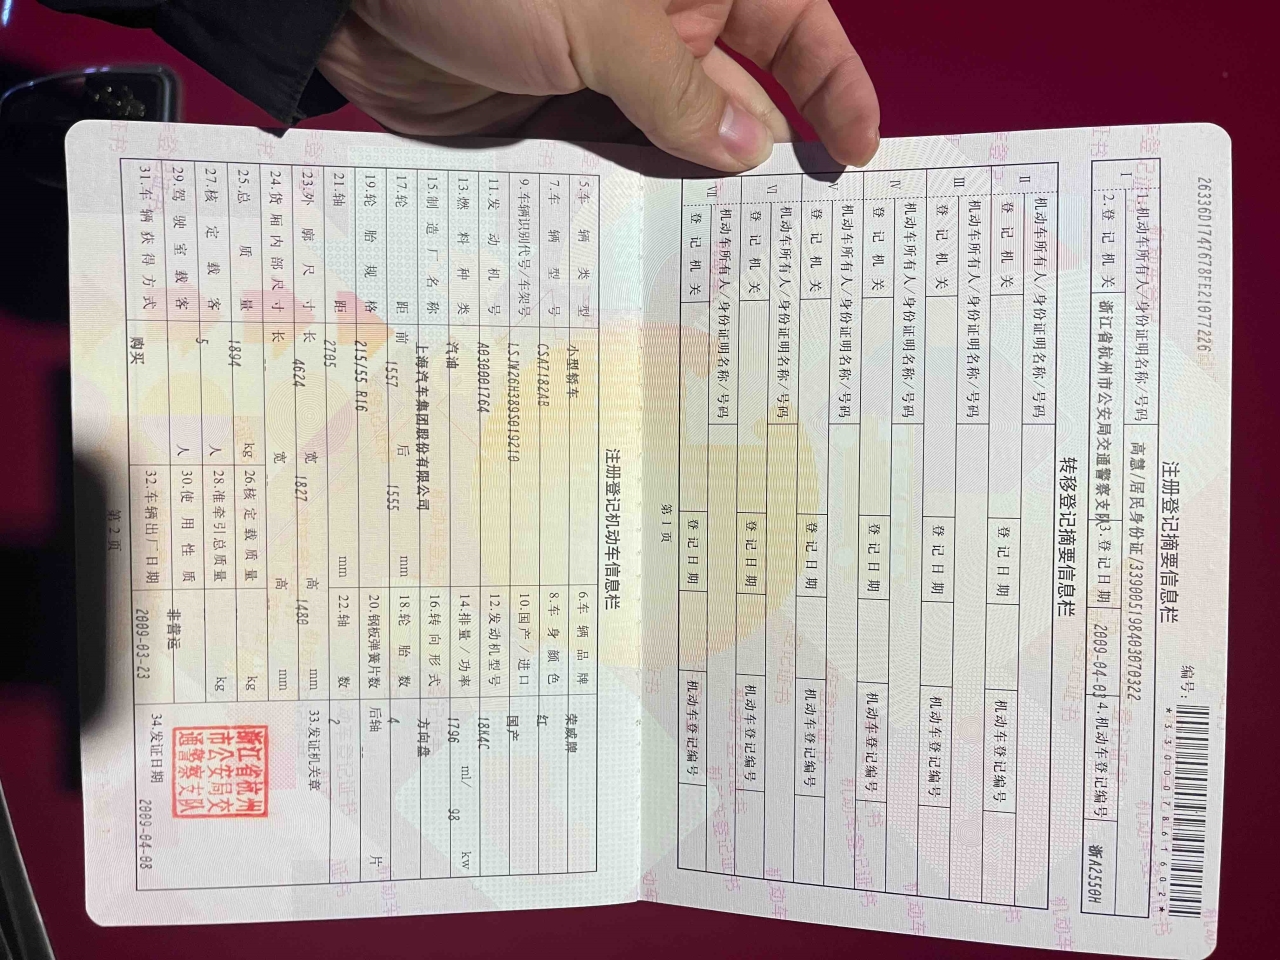 26336D1747678FE21077226
编号:
*330007861602*
注册登记摘要信息栏
I 1.机动车所有人/身份证明名称/号码 高慧/居民身份证/339005198403070322
2.登记机关 浙江省杭州市公安局交通警察支队 3.登记日期 2009-04-03 4.机动车登记编号 浙A2550H
转移登记摘要信息栏
II 机动车所有人/身份证明名称/号码
登记机关 登记日期 机动车登记编号
III 机动车所有人/身份证明名称/号码
登记机关 登记日期 机动车登记编号
IV 机动车所有人/身份证明名称/号码
登记机关 登记日期 机动车登记编号
V 机动车所有人/身份证明名称/号码
登记机关 登记日期 机动车登记编号
VI 机动车所有人/身份证明名称/号码
登记机关 登记日期 机动车登记编号
VII 机动车所有人/身份证明名称/号码
登记机关 登记日期 机动车登记编号
第1页
注册登记机动车信息栏
5.车辆类型 小型轿车 6.车辆品牌 荣威牌
7.车辆型号 CSA7182AB 8.车身颜色 红
9.车辆识别代号/车架号 LSJW26H389S019210 10.国产/进口 国产
11.发动机号 A030001764 12.发动机型号 18K4C
13.燃料种类 汽油 14.排量/功率 1796 ml/ 98 kw
15.制造厂名称 上海汽车集团股份有限公司 16.转向形式 方向盘
17.轮距 前 1557 后 1555 mm 18.轮胎数 4
19.轮胎规格 215/55 R16 20.钢板弹簧片数 后轴 片
21.轴距 2705 mm 22.轴数 2
23.外廓尺寸 长 4624 宽 1827 高 1480 mm 33.发证机关章
24.货厢内部尺寸 长 宽 高 mm
25.总质量 1894 kg 26.核定载质量 kg
27.核定载客 5 人 28.准牵引总质量 kg
29.驾驶室载客 人 30.使用性质 非营运
31.车辆获得方式 购买 32.车辆出厂日期 2009-03-23 34.发证日期 2009-04-08
浙江省杭州市公安局交通警察支队
第2页